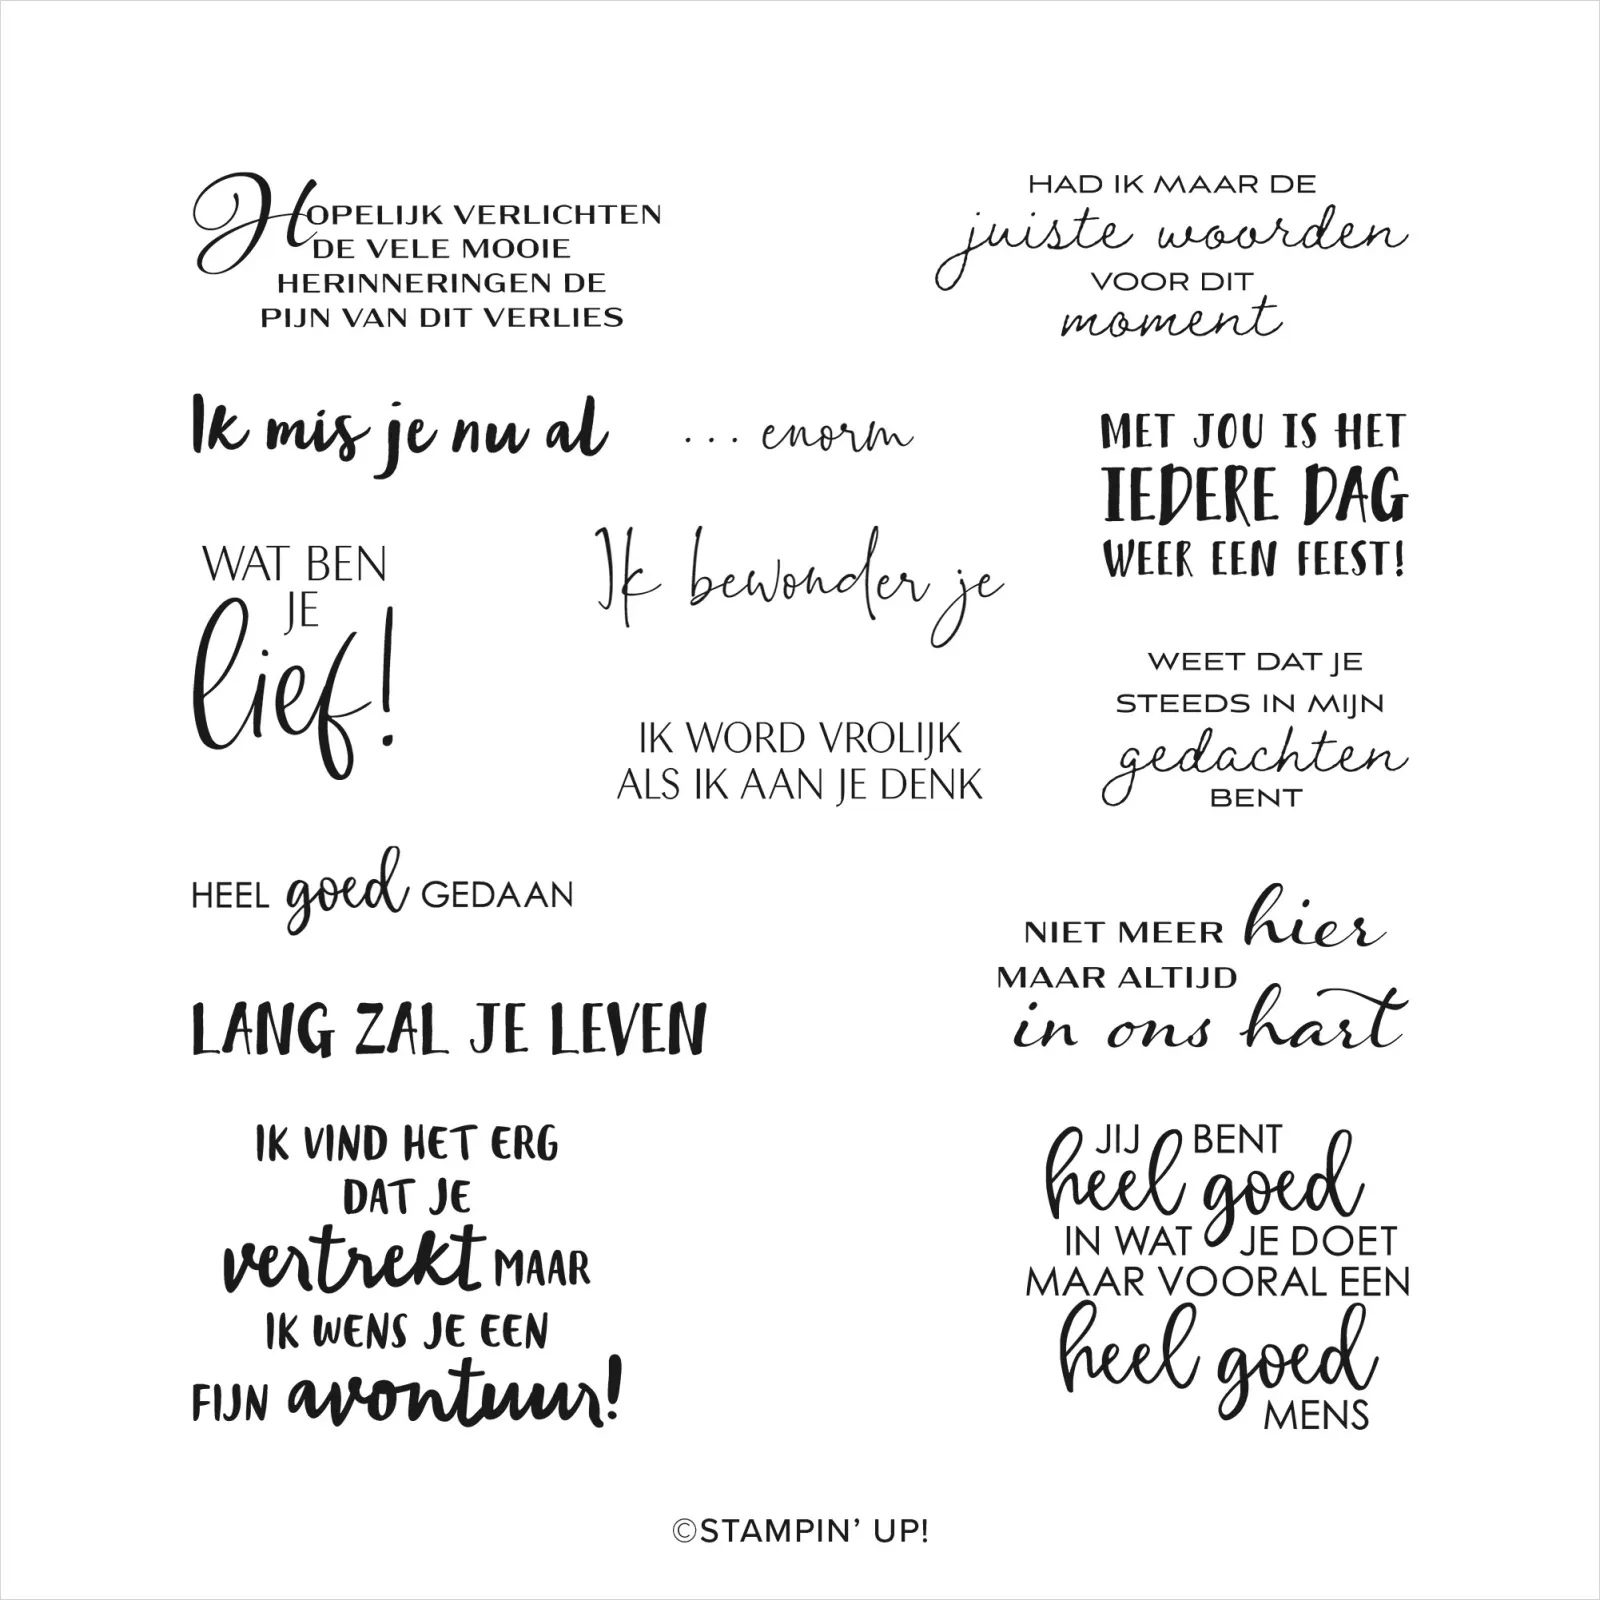 HOPELIJK VERLICHTEN
DE VELE MOOIE
HERINNERINGEN DE
PIJN VAN DIT VERLIES
HAD IK MAAR DE
juiste woorden
VOOR DIT
moment
Ik mis je nu al
... enorm
MET JOU IS HET
IEDERE DAG
WEER EEN FEEST!
WAT BEN
JE
lief!
Ik bewonder je
IK WORD VROLIJK
ALS IK AAN JE DENK
WEET DAT JE
STEEDS IN MIJN
gedachten
BENT
HEEL goed GEDAAN
NIET MEER hier
MAAR ALTIJD
in ons hart
LANG ZAL JE LEVEN
IK VIND HET ERG
DAT JE
vertrekt MAAR
IK WENS JE EEN
FIJN avontuur!
JIJ BENT
heel goed
IN WAT JE DOET
MAAR VOORAL EEN
heel goed
MENS
©STAMPIN' UP!